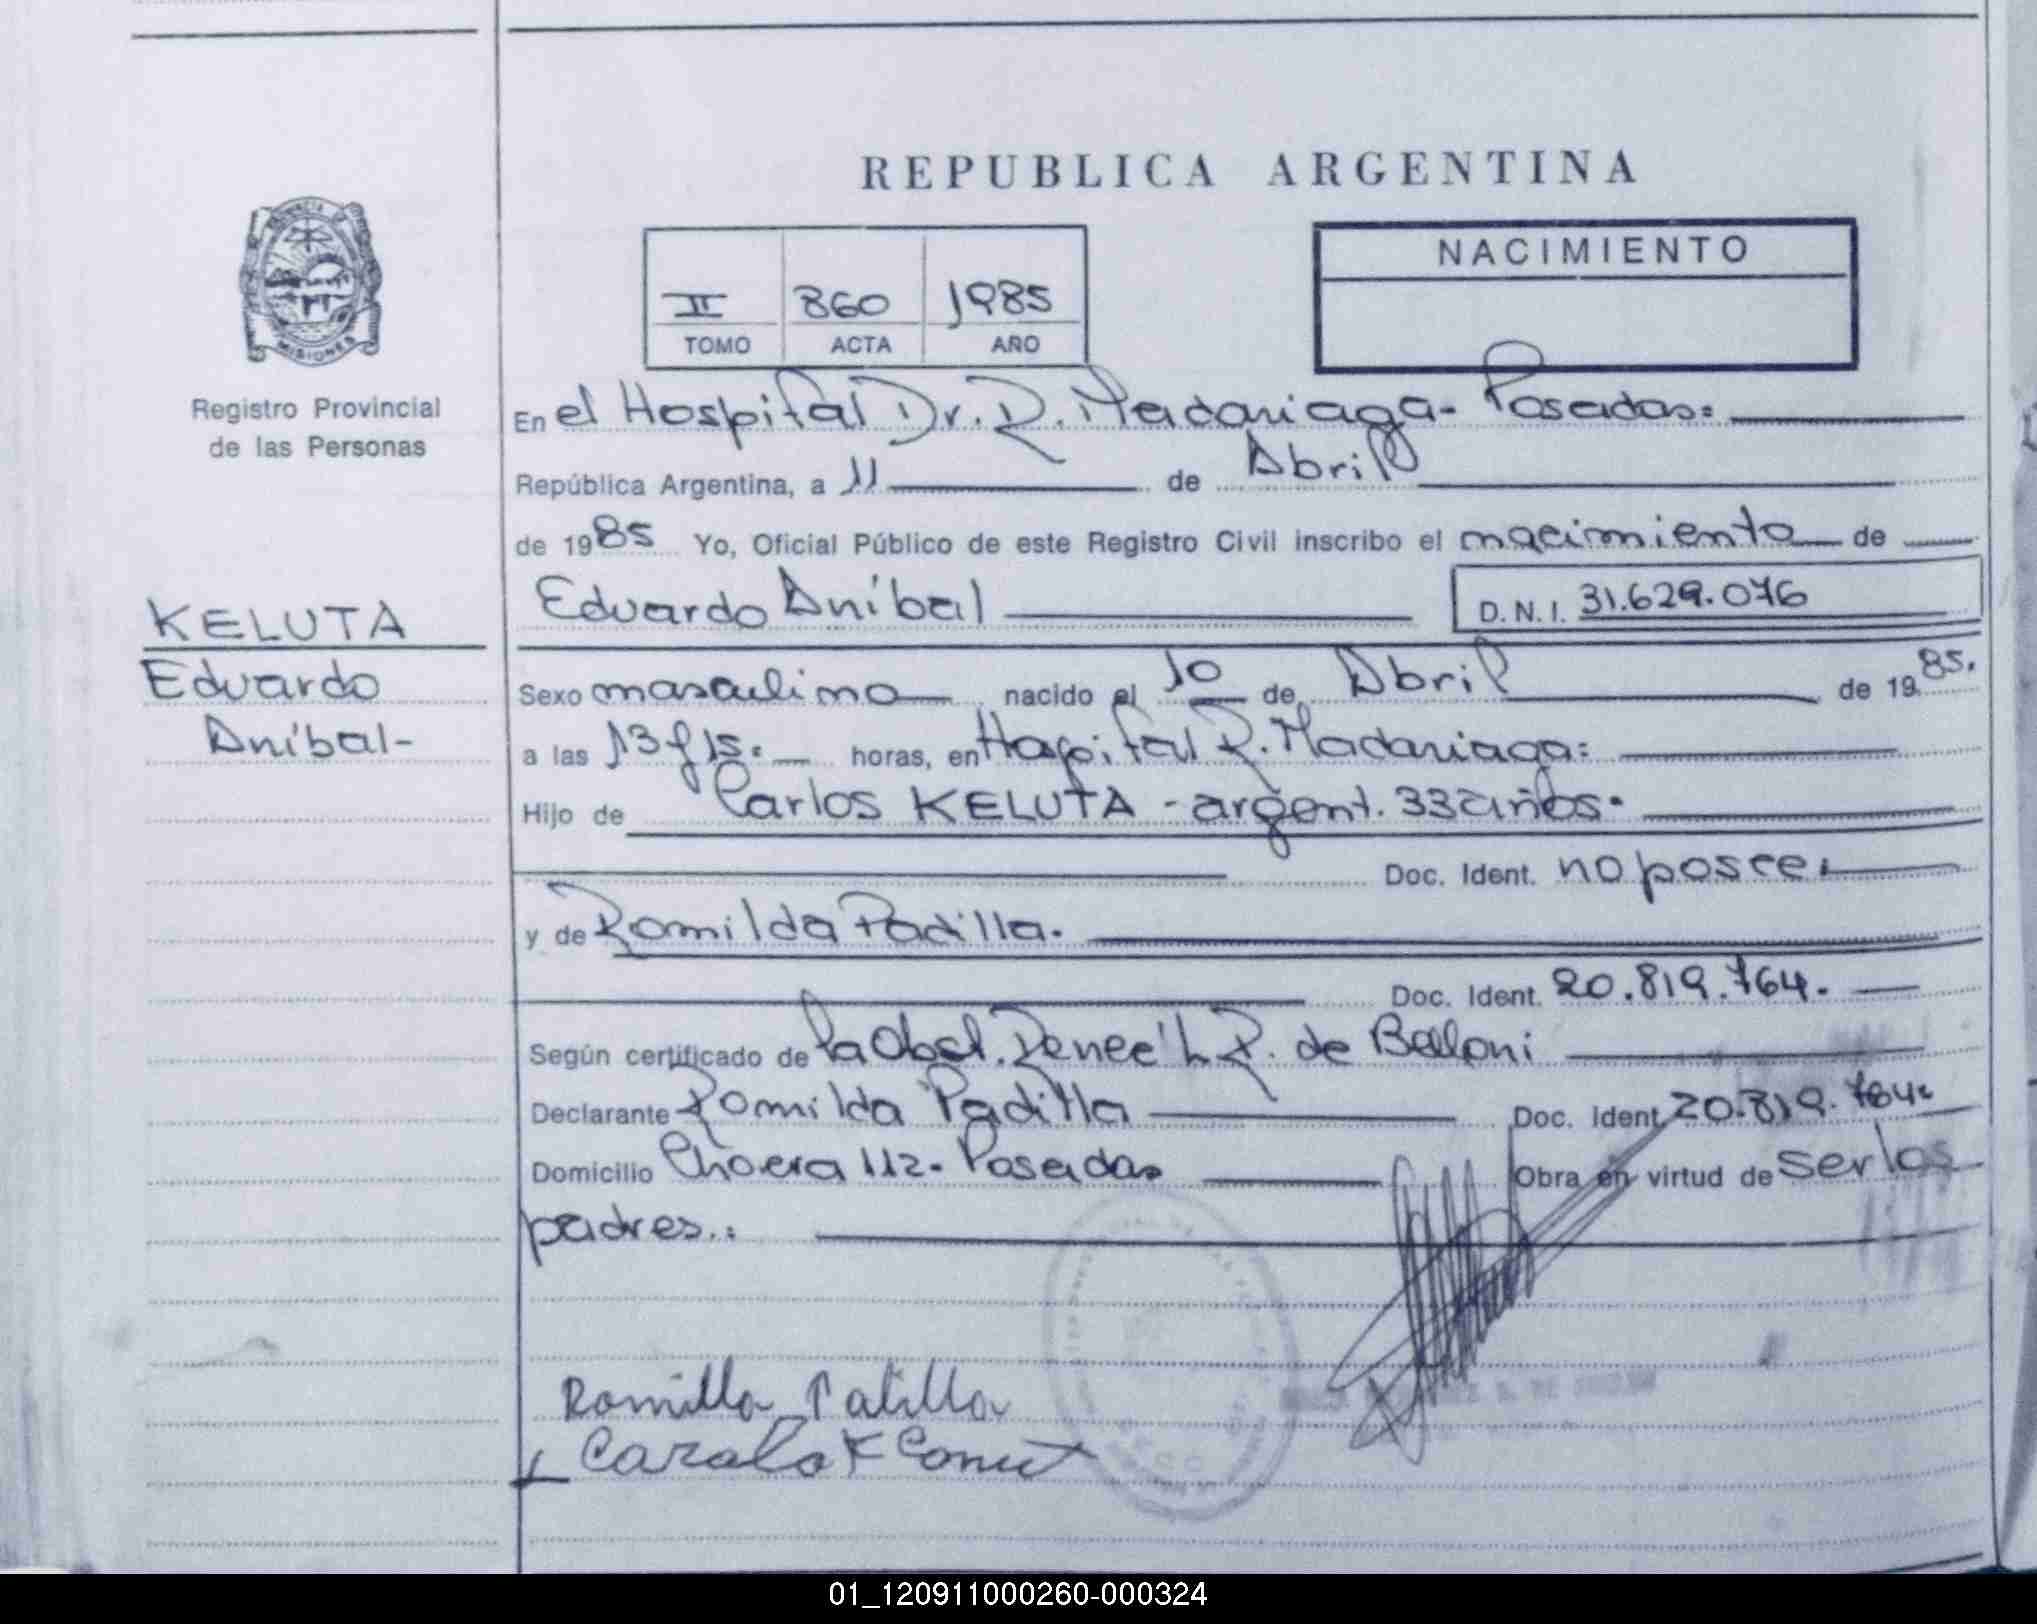 REPUBLICA ARGENTINA
PROVINCIA DE
MISIONES
Registro Provincial
de las Personas
II 860 1985
TOMO ACTA AÑO
NACIMIENTO
En el Hospital Dr. R. Madariaga- Posadas:
República Argentina, a 11 de Abril
de 1985 Yo, Oficial Público de este Registro Civil inscribo el nacimiento de
Eduardo Aníbal D.N.I. 31.629.076
KELUTA
Eduardo
Aníbal-
Sexo masculino nacido el 10 de Abril de 1985.
a las 13 y 15. horas, en Hospital R. Madariaga:
Hijo de Carlos KELUTA - argent. 33 años.
Doc. Ident. no posee.
y de Romilda Padilla.
Doc. Ident. 20.819.764.
Según certificado de la Obst. Renee L R. de Belloni
Declarante Romilda Padilla Doc. Ident. 20.819.764.
Domicilio 112- Posadas Obra en virtud de ser los
padres.:
Romilda Padilla
01_120911000260-000324